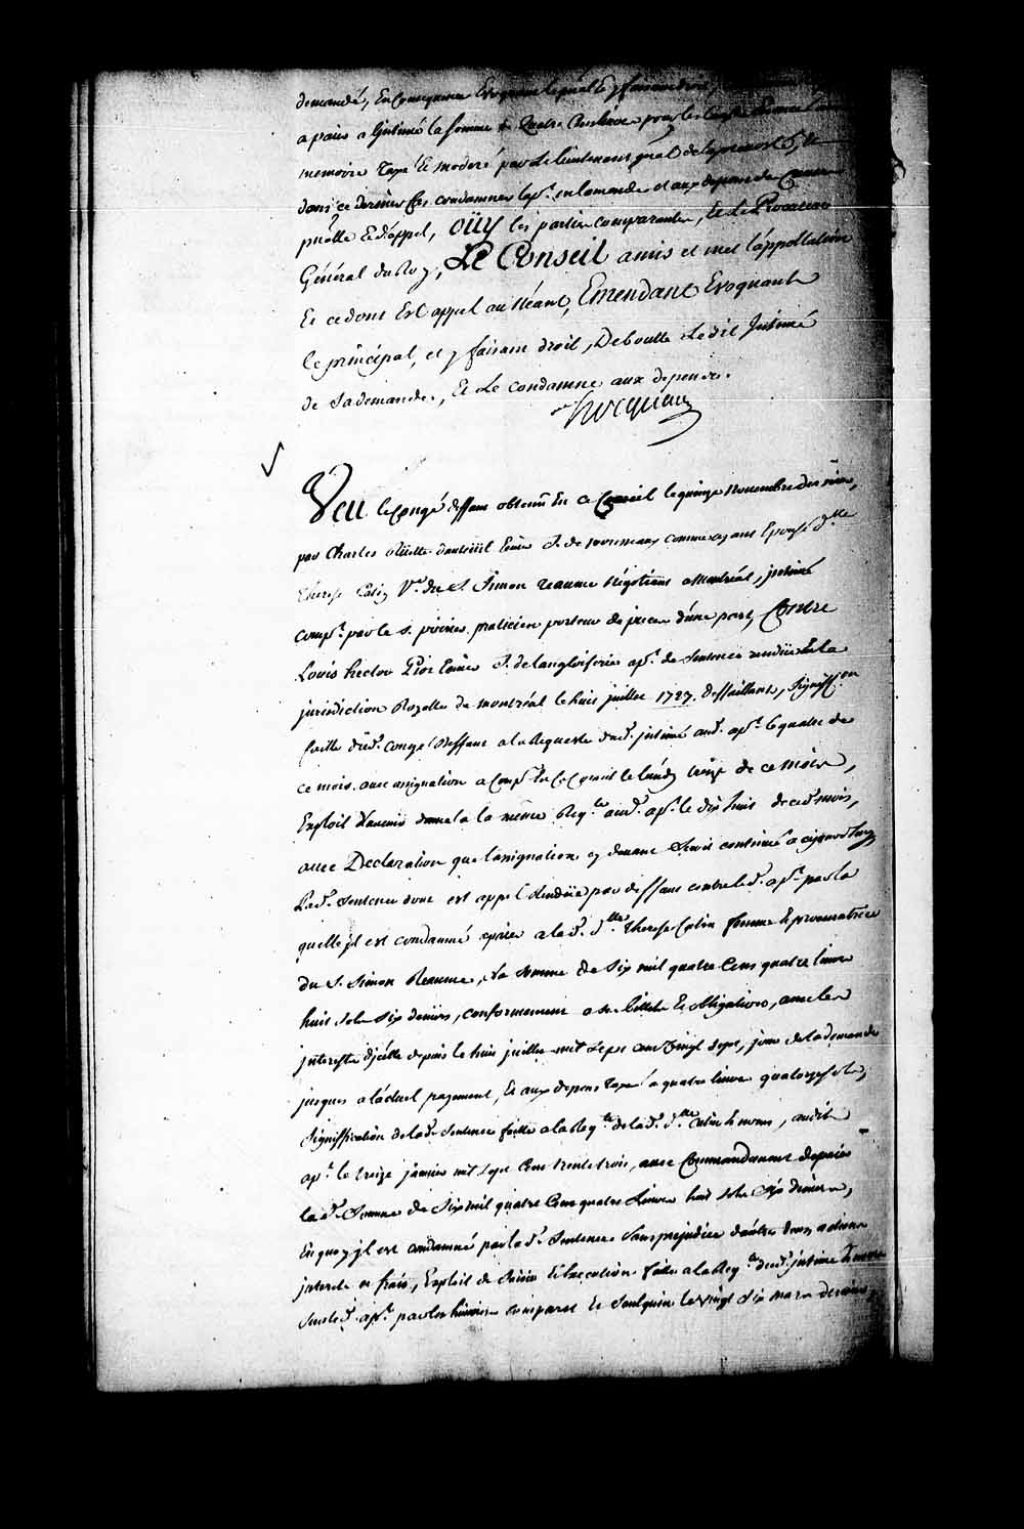 demandé, En Consequence Evoquant le principal Et y faisant droit,
a paier a l'intimé la somme de Quatre Cens livres pour les
memoire Taxé Et moderé par le lieutenant gñal de la prevosté, Et
dans ce dernier Cas condamner l'apt. en lamande et aux depens de Cause
pñalle Et d'appel, Oüy les parties comparantes, Et Le Procureur
Général du Roy, Le Conseil a mis et met l'appellation
Et ce dont Est appel au Néant, Emendant Evoquant
le principal, et y faisant droit, Deboutte Ledit Intimé
de Sa demande, Et Le condamne aux depens.
hocquart
Veu le congé deffaut obtenu En ce Conseil le quinze Novembre dernier,
par Charles Rüette dauteüil Ecuier S. de monceaux comme ayant Epousé d.lle
Therese Catin Ve. du S. Simon reaume Négotiant a Montréal, intimé
comp.t par le S. poirier praticien porteur de pieces d'une part, Contre
Louis hector Piot Ecuier S. de langloiserie ap.t de Sentence rendüe En la
jurisdiction Royalle de montréal le huit juillet 1727. deffaillant, Signiff.on
faitte dud. congé Deffaut a la Requeste dud. intimé aud. ap.t le quatre de
ce mois. avec assignation a Comp.r En ce Conseil le lundy treize de ce mois,
Exploit d'avenir donné a la même Req.te aud. ap.t le dix huit de ced. mois,
avec Declaration que l'assignation y donnée Seroit continüé a cejourd'huy
Lad. Sentence dont est appel Rendüe par deffaut contre led. ap.t par la
quelle jl est condamné a paier a lad. d.lle Therese Catin femme Et procuratrice
du S. Simon Reaume, La Somme de Six mil quatre Cens quatre livres
huit Sols Six deniers, conformement a ses billets Et obligations, avec les
jnterests d'jcelle depuis le huit juillet mil Sept cent Vingt Sept, jour de la demande
jusques a l'actuel payement, Et aux depens Taxé a quatre livres quatorze Sols,
Signiffication de lad. Sentence faitte a la Req.te de lad. d.lle Catin Et noms, audit
ap.t le treize janvier mil Sept Cens trente trois, avec Commandement de paier
la d. Somme de Six mil quatre Cens quatre Livres huit Sols Six deniers,
En quoy jl est condamné par la d. Sentence Sans prejudice d'autres dus, actions
jnterests et frais, Exploit de Saisie Et Execution faitte a la Req.te dud. intimé Et noms
Sur led. ap.t par les huissiers Et le vingt Six mars dernier,